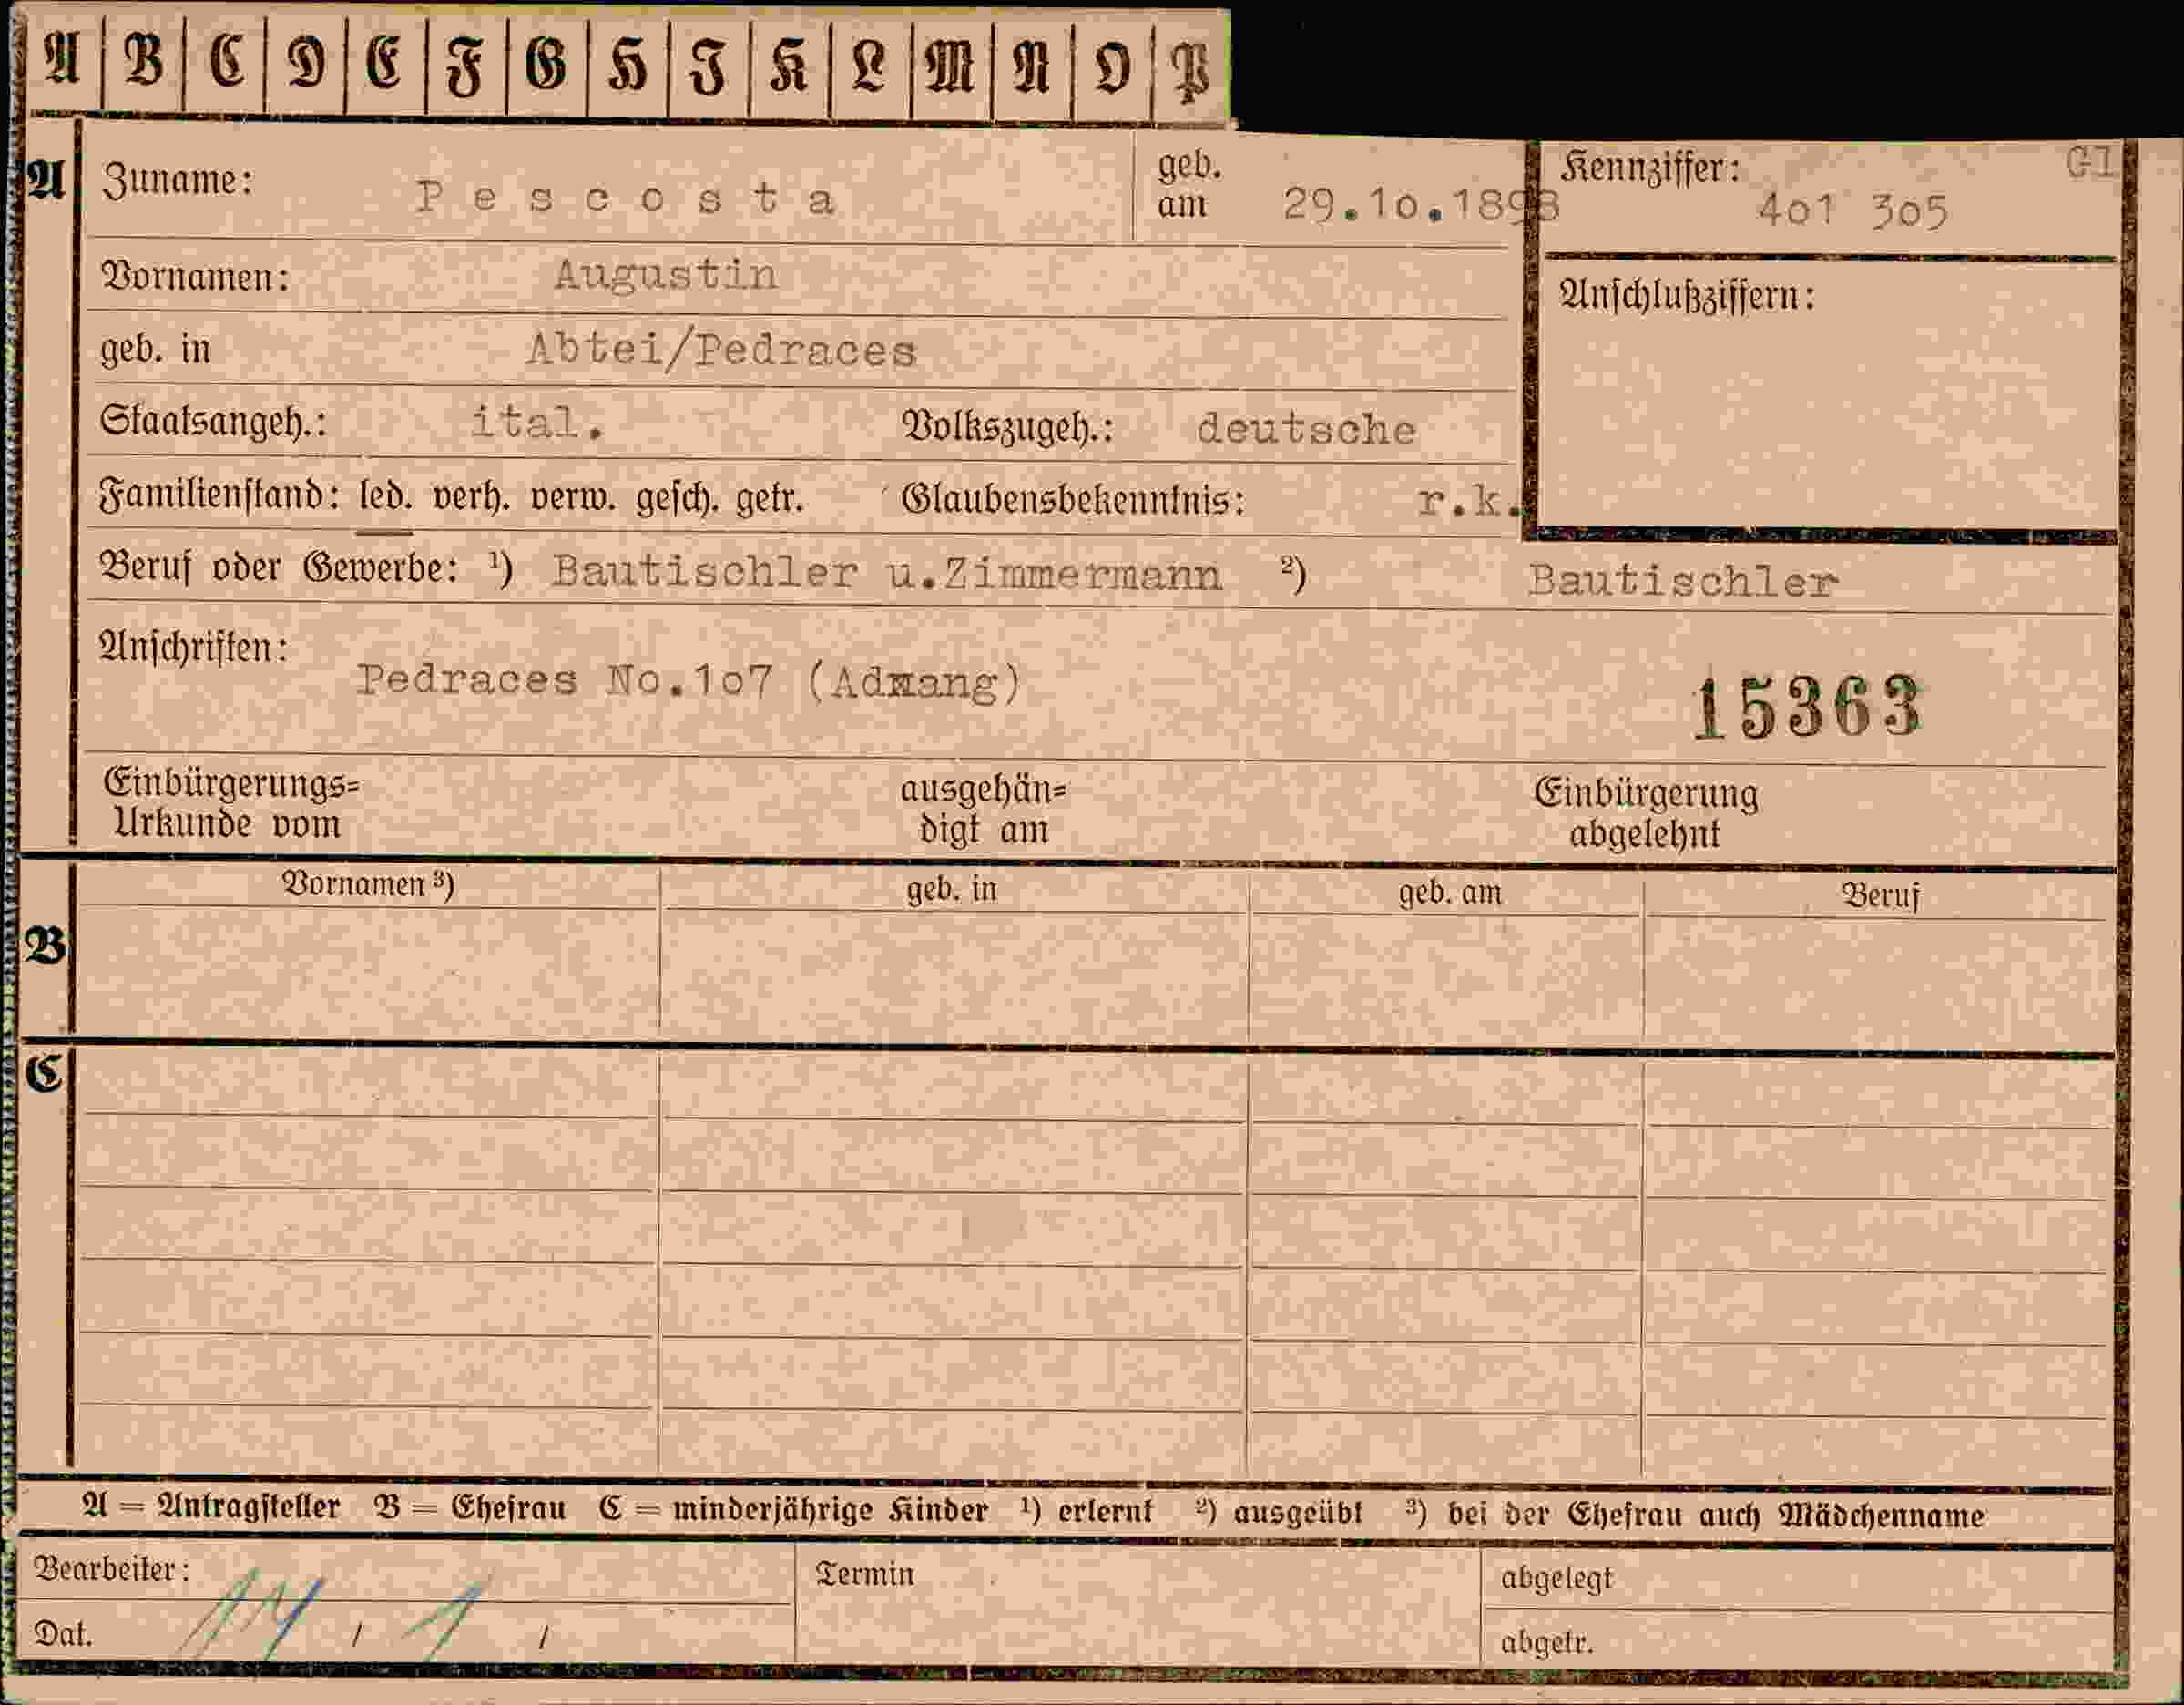 A B C D E F G H I K L M N O P
A Zuname: Pescosta geb. am 29.10.1898 Kennziffer: 401 305 Gl
Vornamen: Augustin Anschlußziffern:
geb. in Abtei/Pedraces
Staatsangeh.: ital. Volkszugeh.: deutsche
Familienstand: led. verh. verw. gesch. getr. Glaubensbekenntnis: r.k.
Beruf oder Gewerbe: ¹) Bautischler u.Zimmermann ²) Bautischler
Anschriften:
Pedraces No.107 (Admang) 15363
Einbürgerungs= ausgehän= Einbürgerung
Urkunde vom digt am abgelehnt
Vornamen ³) geb. in geb. am Beruf
B
C
A = Antragsteller B = Ehefrau C = minderjährige Kinder ¹) erlernt ²) ausgeübt ³) bei der Ehefrau auch Mädchenname
Bearbeiter: Termin abgelegt
Dat. 14 / 1 / abgetr.